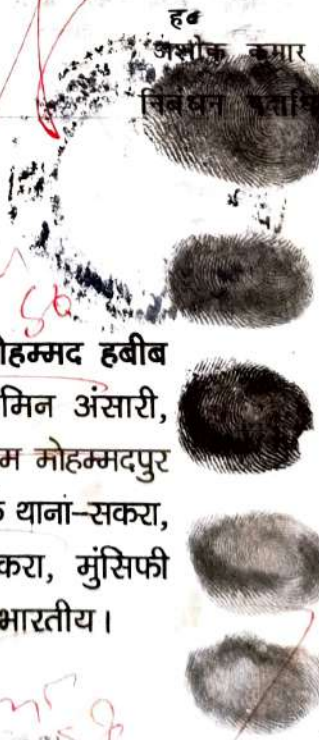 ह०
अशोक कुमार
निबंधन
ोहम्मद हबीब
मिन अंसारी,
म मोहम्मदपुर
थाना–सकरा,
करा, मुंसिफी
भारतीय।